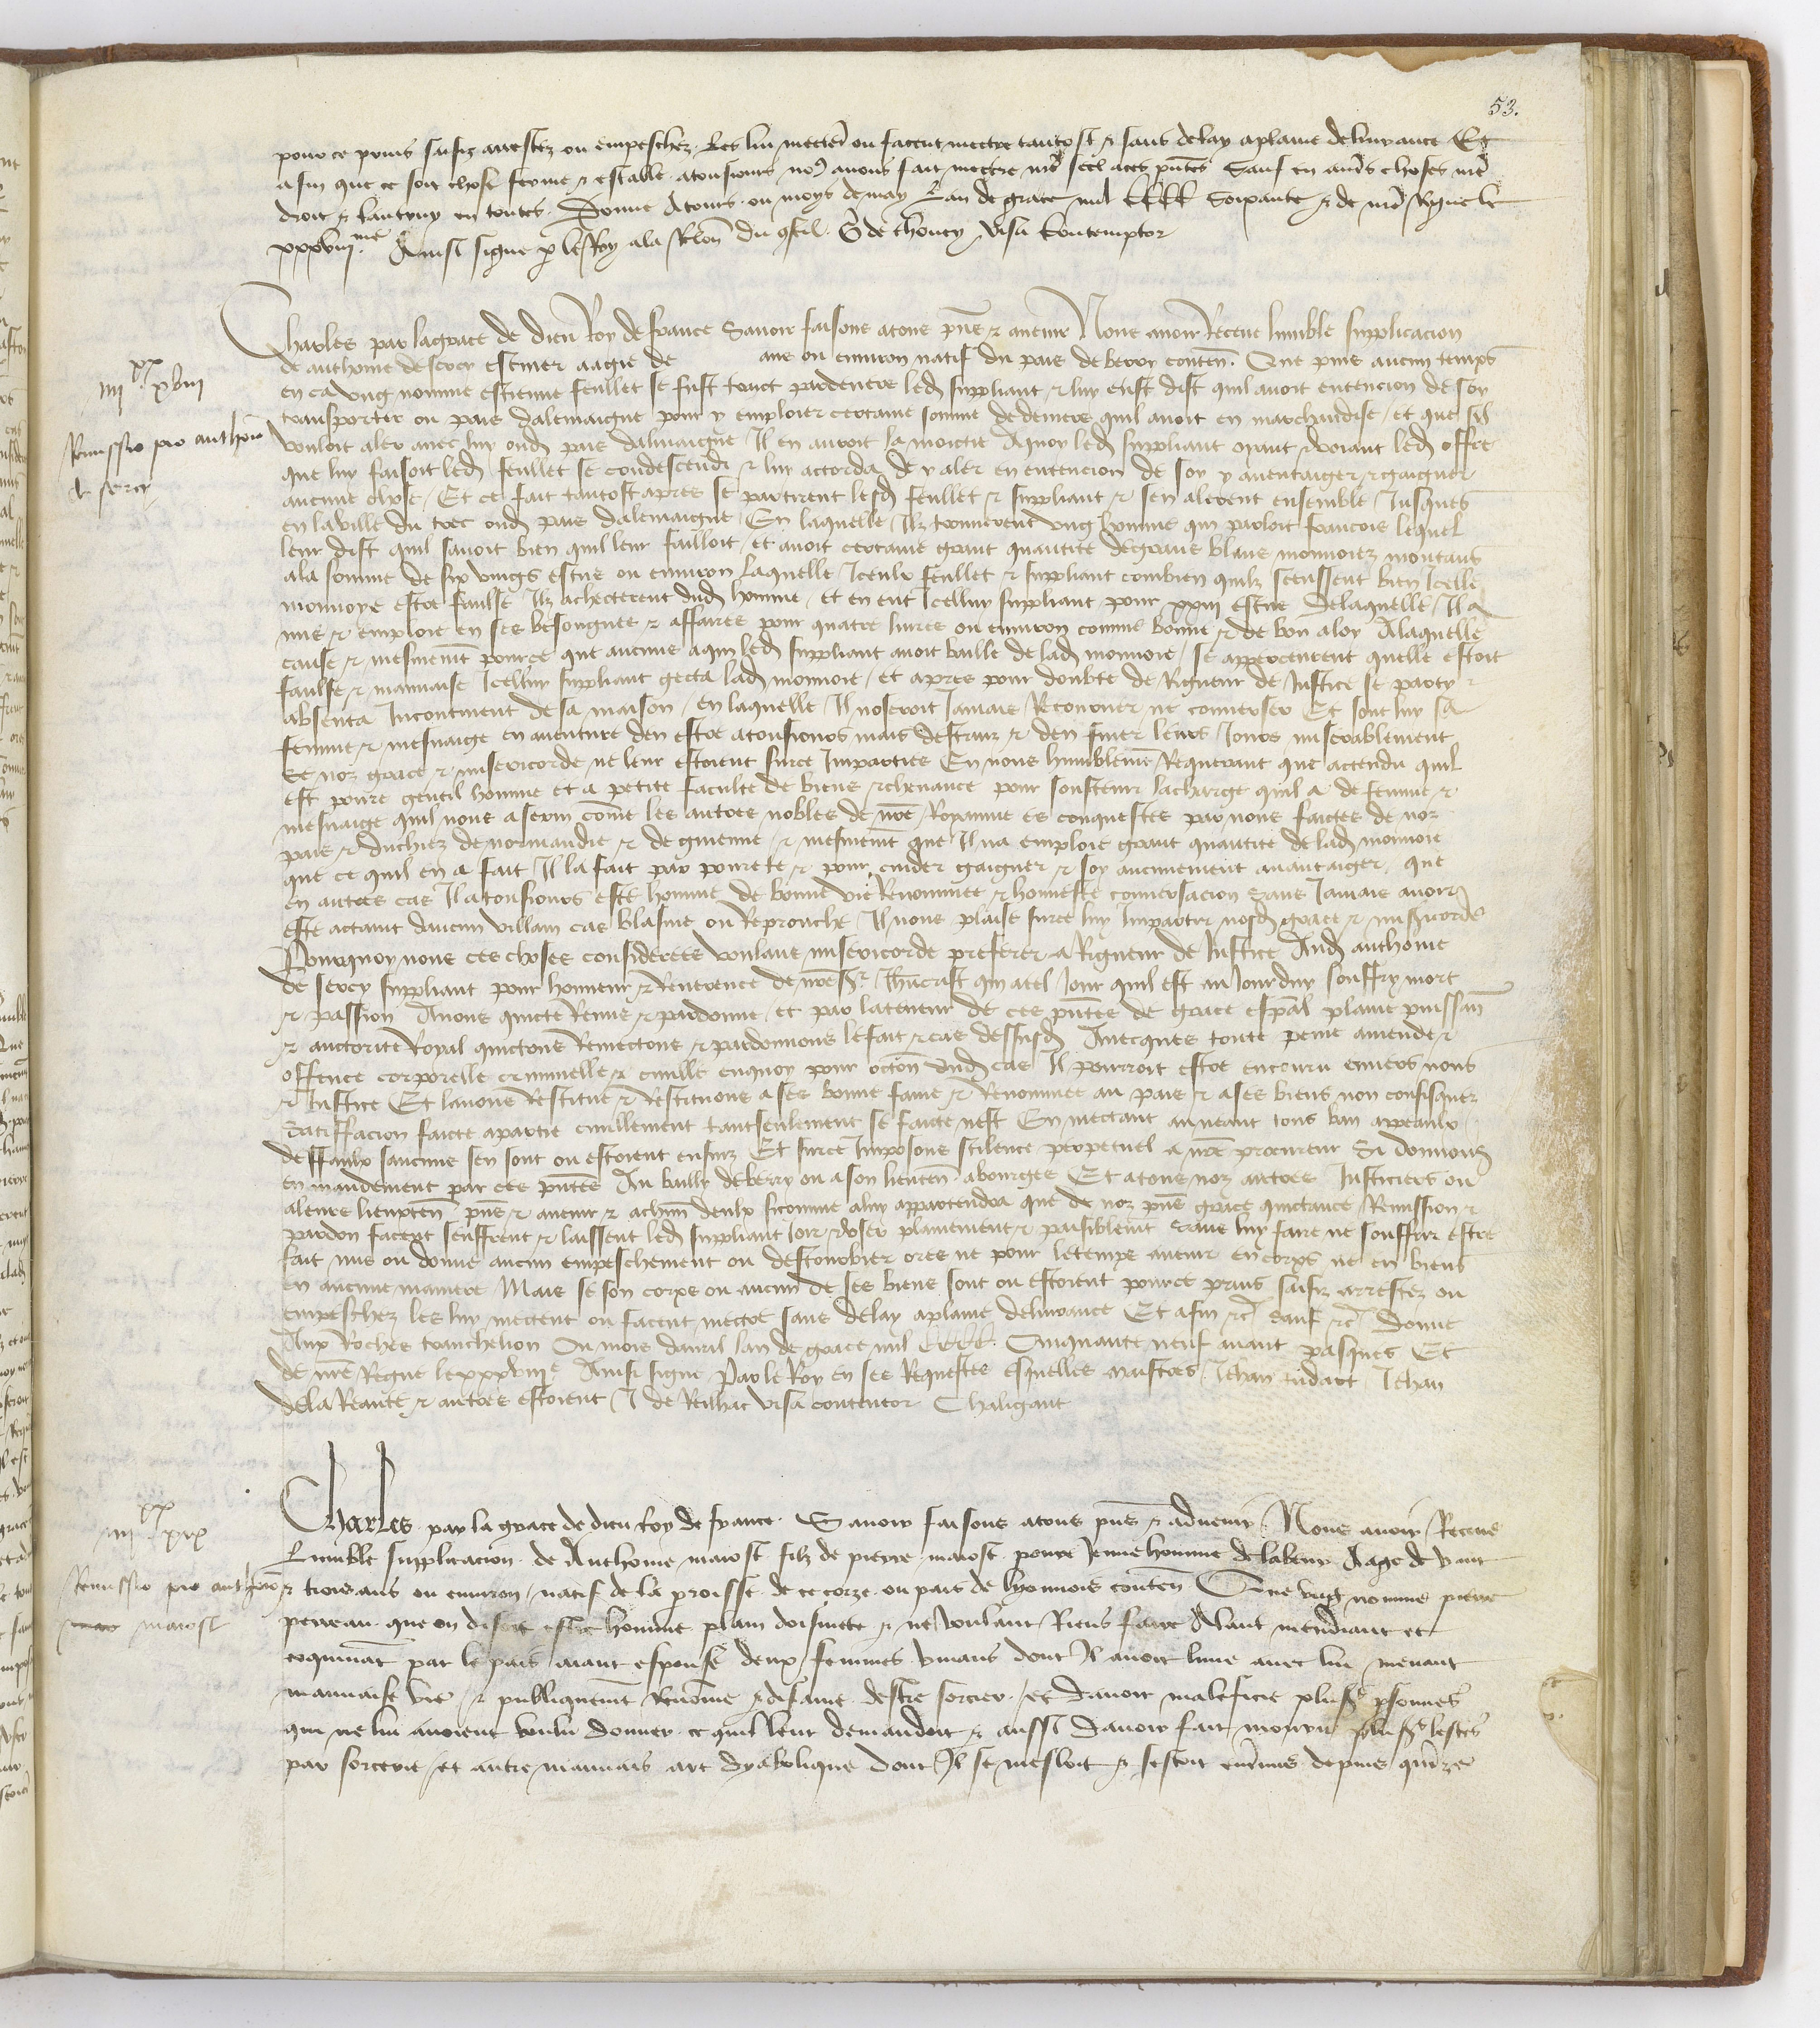 53.
pour ce prins saisiz arrestez ou empeschez les lui mectent ou facent mectre tantost et sans delay a plaine delivrance Et
afin que ce soit chose ferme et estable a tousjours no9 avons fait mectre nre seel a ces pntes Sauf en aut's choses nre
droit et l'autruy en toutes. Donne a tours ou moys de may Lan de grace mil CCCC soixante et de nre Regne le
xxxviij.me Ainsi signe p le Roy a la Relon du 9seil. G de thoucy visa Contentor
Charles par la grace de dieu Roy de france Savoir faisons a tous pns et avenir Nous avoir Receue humble supplicacion
iiij xx xviij
de anthoine de sercy escuier aagie de ans ou environ natif du pais de berry conten. Que puis aucun temps
en ca ung nomme estienne feullet se fust tenct par devers led suppliant et luy eust dist quil avoit entencion de soy
transporter ou pais dalemaigne pour y emploier certaine somme de deniers quil avoit en marchandise et que sil
Remissio pro anthonio
de sercy
vouloit aler avec luy oud pais dalmaigne Il en auroit la moictie A quoy led suppliant oyant et voiant led offre
que luy faisoit led feullet se condescendi et luy accorda de y aler en entencion de soy y aventaiger et gaigner
aucune chose Et ce fait tantost apres se partirent lesd feullet et suppliant et sen alerent ensemble Jusques
en la ville du trec oud pais dalemaigne En laquelle Ilz trouverent ung homme qui parloit francois lequel
leur dist quil savoit bien quil leur failloit et avoit certaine grant quantite de grans blans monnoiez montans
a la somme de six vings escus ou environ Laquelle Iceulx feullet et suppliant combien quilz sceussent bien Icelle
monnoye estre faulse Ilz achecterent dud homme et en eut Icelluy suppliant pour xxiiij escus De laquelle Il a
mis et emploie en ses besongnes et affaires pour quatre livres ou environ comme bonne et de bon aloy A laquelle
cause et mesmemt pource que aucuns a qui led suppliant avoit baille de lad monnoie se apperceurent quelle estoit
faulse et mauvaise Icelluy suppliant gecta lad monnoie et apres pour doubte de Rigueur de Justice se party et
absenta Incontinent de sa maison en laquelle Il noseroit Jamais Retourner ne converser Et sont luy sa
femme et mesnaige en aventure den estre a tousjours mais destruiz et den finer leurs Jours miserablement
Se noz grace et misericorde ne leur estoient sur ce Imparties En nous humblemt Requerant que actendu quil
est povre gentil homme et a petite faculte de biens et chevance pour soustenir la charge quil a de femme et
mesnaige quil nous a servy come les autres nobles de nre Royaume es conquestes par nous faictes de noz
pais et duchiez de normandie et de guienne et mesmemt que Il na emploie grant quantite de lad monnoie
que ce quil en a fait Il la fait par povrete et pour cuider gaigner et soy aucunement avantaiger que
en autres cas Il a tousjours este homme de bonne vie Renommee et honneste conversacion sans Jamais avoir
este actaint daucun villain cas blasme ou Reprouche Il nous plaise sur ce luy Impartir nosd grace et misericorde
Pourquoy nous ces choses considerees voulans misericorde preferer a Rigueur de Justice Aud anthoine
de sercy suppliant pour honneur et Reverence de nres r Jhucrist qui a tel Jour quil est au Jourduy souffry mort
et passion Avons quicte Remis et pardonne et par la teneur de ces pntes de grace espal plaine puissan
et auctorite Royal quictons Remectons et pardonnons le fait et cas dessusd Avecques toute peine amende et
offence corporelle criminelle et civille en quoy pour occon dud cas Il pourroit estre encouru envers nous
et Justice Et lavons Restitue et Restituons a ses bonne fame et Renommee au pais et a ses biens non confisquez
Satiffacion faicte a partie civillement tantseulement se faicte nest En mectant au neant tous ban appeaulx
deffaulx saucuns sen sont ou estoient ensuiz Et sur ce Imposons scilence perpetuel a nre procureur Si donnons
en mandement par ces pntes Au bailly de berry ou a son lieuten a bourges Et a tous noz autres Justiciers ou
a leurs lieuxten pns et avenir et a chun deulx sicomme a luy appartendra que de noz pns grace quictance Remission et
pardon facent seuffrent et laissent led suppliant Joir et user plainement et paisiblemt sans luy faire ne souffrir estre
fait mis ou donne aucun empeschement ou destourbier ores ne pour le temps avenir en corps ne en biens
en aucune maniere Mais se son corps ou aucun de ses biens sont ou estoient pource prins saisiz arrestez ou
empeschez les luy mectent ou facent mectre sans delay a plaine delivrance Et afin etc sauf etc Donne
Aux Roches tranchelion Ou mois davril lan de grace mil CCCC Cinquante neuf avant pasques Et
de nre Regne le xxxviije Ainsi signe Par le Roy en ses Requestes esquelles maistres Jehan tudart Jehan
de la Reaute et autres estoient J de Reilhac visa contentor Chaligant
Charles par la grace de dieu Roy de france. Savoir faisons a tous pns et advenir Nous avoir Receue
iiij xx xix
lumble supplicacion de Anthoine maiost filz de pierre maiost povre Jeune homme de labeur Aage de vint
Remissio pro anthonio
maiost
et trois ans ou environ natif de la proisse de ce corze ou pais de lyonnois conten Que ung nomme pierre
perreau que on disoit estre homme plain doisivete et ne voulant Riens faire Alant mendiant et
coquinat par le pais aiant espouse deux femmes vivans dont Il avoit lune avec lui menant
mauvaise vie et publiquemt Renomme et difame destre sorcier et davoir maleficie plus's psonnes
qui ne lui avoient voulu donner ce quil leur demandoit et aussi davoir fait mourir plus's bestes
par sorcerie et autre mauvais art dyabolique dont Il se mesloit et sestoit entremis depuis quinze